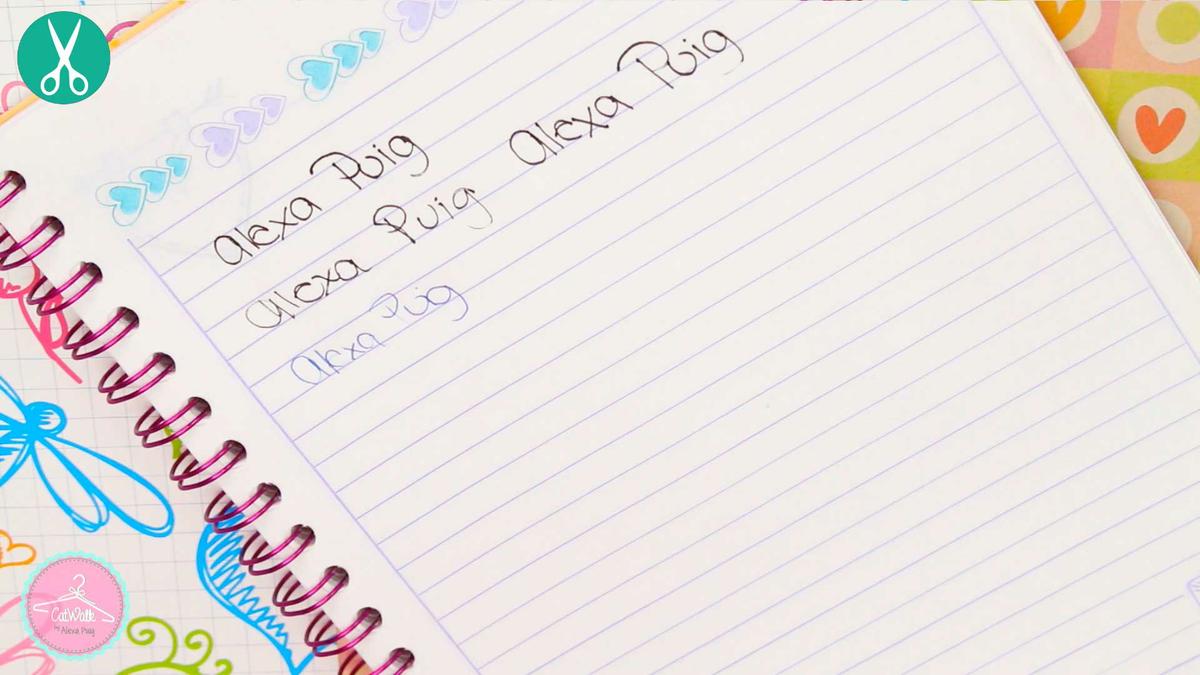 Alexa Puig Alexa Puig
Alexa Puig
Alexa Puig
CatWalk
by Alexa Puig